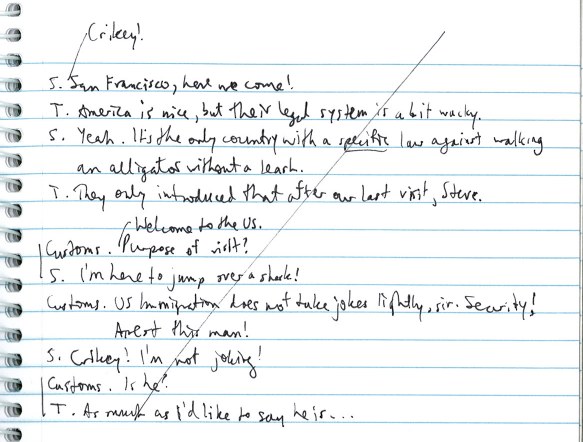 Crikey!
S. San Francisco, here we come!
T. America is nice, but their legal system is a bit wacky.
S. Yeah. It's the only country with a specific law against walking
an alligator without a leash.
T. They only introduced that after our last visit, Steve.
Welcome to the US.
Customs. Purpose of visit?
S. I'm here to jump over a shark!
Customs. US Immigration does not take jokes lightly, sir. Security!
Arrest this man!
S. Crikey! I'm not joking!
Customs. Is he?
T. As much as I'd like to say he is...